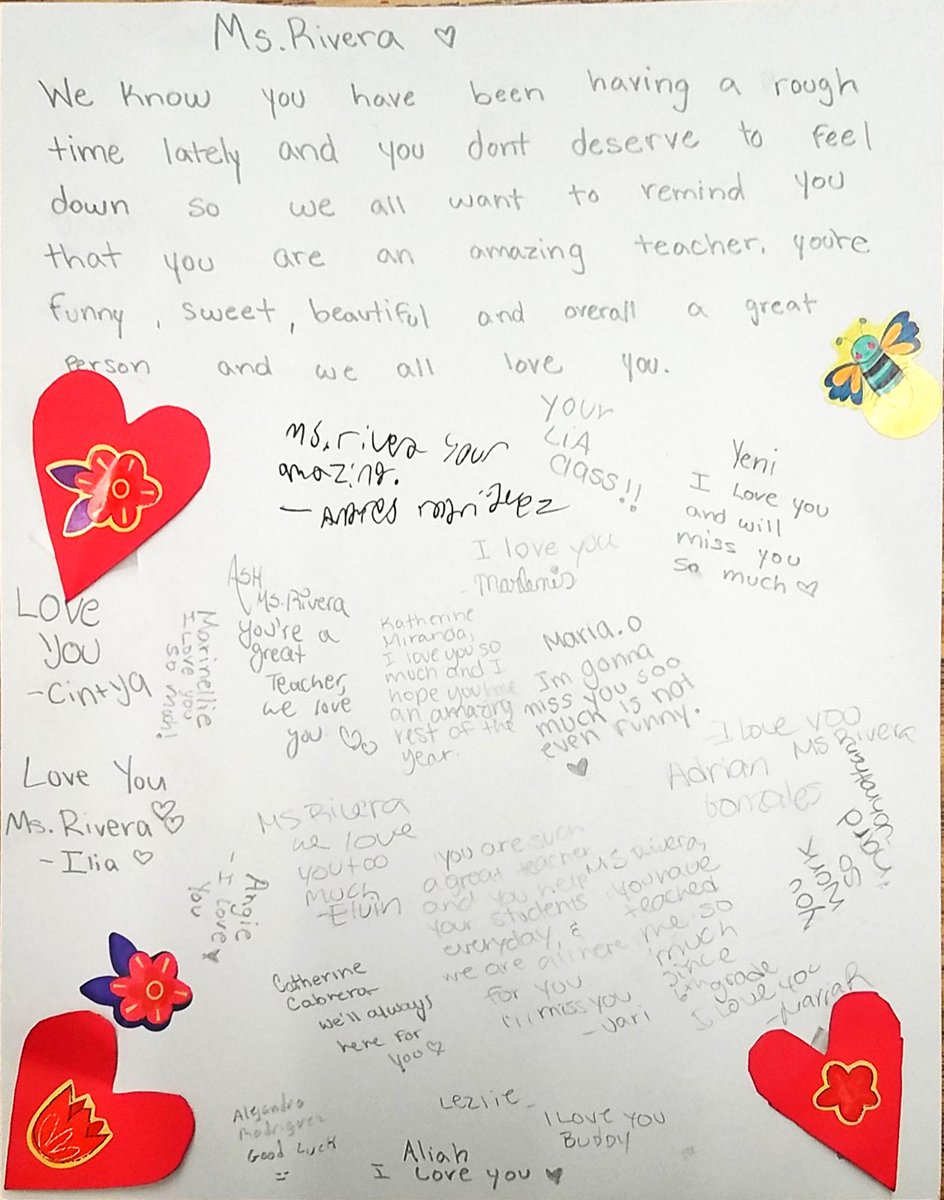 Ms. Rivera ♡
We know you have been having a rough
time lately and you dont deserve to feel
down so we all want to remind you
that you are an amazing teacher. you're
funny, sweet, beautiful and overall a great
person and we all love you.
your
LiA
class!!
Ms. rivera your
amazing.
Yeni
I love you
and will
miss you
so much ♡
I love you
- Marlenis
Love
you
- Cintya
Marinellie
I Love you
so
ASH
Ms. Rivera
you're a
great
Teacher,
we love
you ♡♡
Katherine
Miranda,
I love you so
much and I
hope you have
an amazing
rest of the
year.
Maria.O
Im gonna
miss you soo
much is not
even funny.
♥
I love you
Ms Rivera
Adrian
Gonzales
Johnathan
you
work
so
hard
Love You
Ms. Rivera ♡♡
- Ilia ♡
Ms Rivera
we love
you too
much
- Elvin
- Angie
I love
you ♥
you are such
a great teacher
and you help
your students
everyday, &
we are all here
for you
I'll miss you
- Yari
Ms Rivera,
you have
teached
me so
much
since
6th grade
I Love you
- Maria R
Catherine
Cabrera
we'll always
here for
you ♡
Alejandra
Good Luck
Lezlie -
I Love you
Buddy
Aliah
I Love you ♥